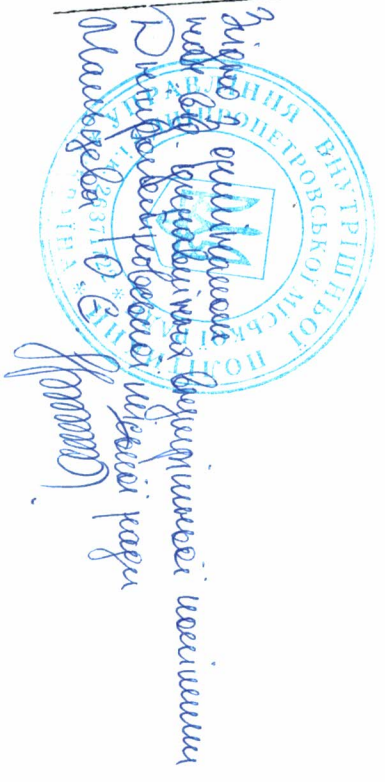 Згідно з оригіналом
нач. від. управління внутрішньої політики
Дніпропетровської міської ради
Мальцева О. Є.
УПРАВЛІННЯ ВНУТРІШНЬОЇ ПОЛІТИКИ
ДНІПРОПЕТРОВСЬКОЇ МІСЬКОЇ